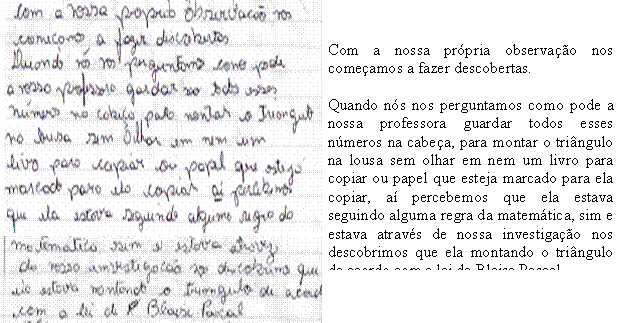 com a nossa propria observação nos
começamos a fazer descobertas
Quando nós nos perguntamos como pode
a nossa professora guardar todos esses
números na cabeça para montar o triangulo
na lousa sem olhar em nem um
livro para copiar ou papel que esteja
marcado para ela copiar aí percebemos
que ela estava seguindo alguma regra da
matemática sim e estava atravez
da nossa investigação nos descobrimos que
ela estava montando o triangulo de acord
com a lei de Blaise Pascal
Com a nossa própria observação nos
começamos a fazer descobertas.
Quando nós nos perguntamos como pode a
nossa professora guardar todos esses
números na cabeça, para montar o triângulo
na lousa sem olhar em nem um livro para
copiar ou papel que esteja marcado para ela
copiar, aí percebemos que ela estava
seguindo alguma regra da matemática, sim e
estava através de nossa investigação nos
descobrimos que ela montando o triângulo
de acordo com a lei de Blaise Pascal